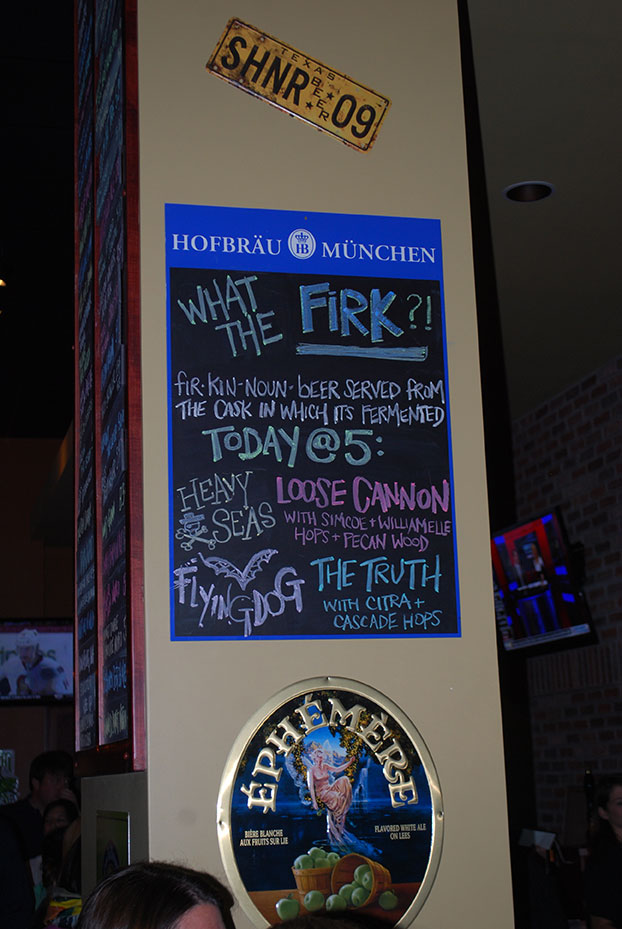 TEXAS
SHNR BEER 09
HOFBRÄU HB MÜNCHEN
WHAT THE FiRK?!
fiR·KiN-NOUN-BEER SERVED FROM
THE CASK IN WHICH ITS FERMENTED
TODAY@5:
HEAVY
SEAS
LOOSE CANNON
WITH SIMCOE + WILLIAMELLE
HOPS + PECAN WOOD
FLYING DOG
THE TRUTH
WITH CITRA +
CASCADE HOPS
ÉPHÉMÈRE
BIÈRE BLANCHE
AUX FRUITS SUR LIE
FLAVORED WHITE ALE
ON LEES